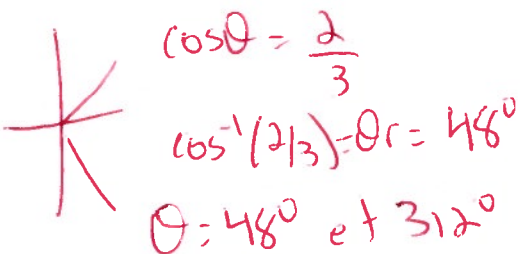 cosθ = 2/3
cos⁻¹(2/3) = θr = 48°
θ = 48° et 312°